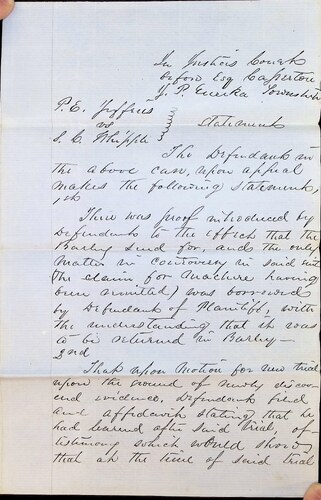 In Justice's Court
before Esq Casperton
J. P. Eureka Township
P. E. Jeffries
vs
S. C. Whipple
Statement
The Defendant in
the above case, upon appeal
makes the following statement,
1st
There was proof introduced by
Defendant to the effect that the
Barley sued for, and the only
matter in controversy in said suit
(the claim for Machine having
been remitted) was borrowed
by Defendant of Plaintiff, with
the understanding that it was
to be returned in Barley—
2nd
That upon motion for new trial
upon the ground of newly discov-
ered evidence, Defendant filed
and affidavits stating that he
had learned after said trial, of
testimony which would show
that at the time of said trial